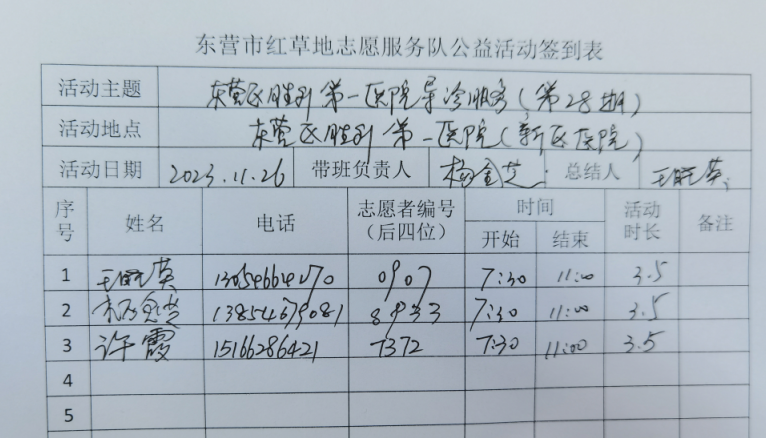 东营市红草地志愿服务队公益活动签到表
活动主题 东营区胜利第一医院导诊服务(第28期)
活动地点 东营区胜利第一医院(新区医院)
活动日期 2023.11.26 带班负责人 杨金芝 总结人 王晓英
序号 姓名 电话 志愿者编号(后四位) 时间 开始 结束 活动时长 备注
1 王晓英 13054664270 0907 7:30 11:00 3.5
2 杨金芝 13854679081 8933 7:30 11:00 3.5
3 许霞 15166286421 7372 7:30 11:00 3.5
4
5